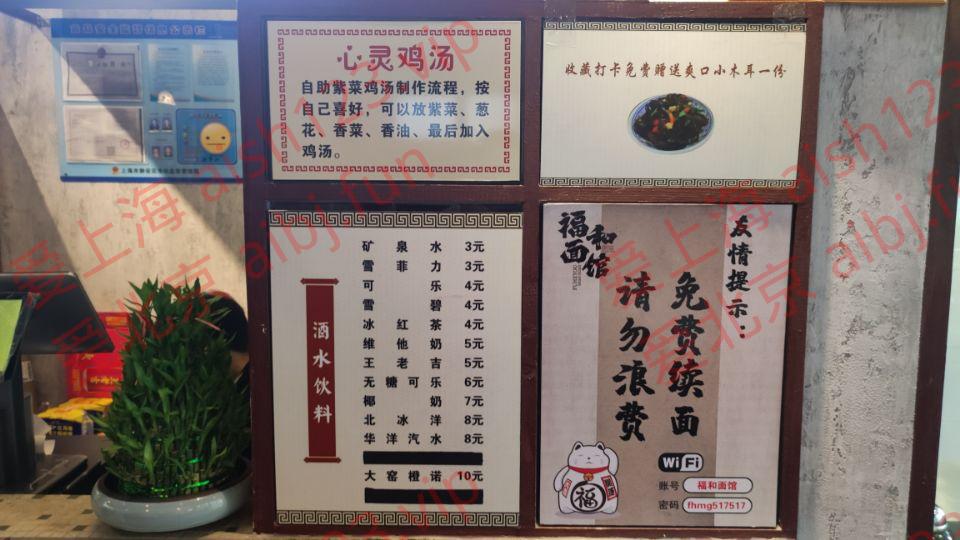 食品安全监督信息公示栏
心灵鸡汤
自助紫菜鸡汤制作流程，按
自己喜好，可以放紫菜、葱
花、香菜、香油、最后加入
鸡汤。
收藏打卡免费赠送爽口小木耳一份
酒水饮料
矿泉水 3元
雪菲力 3元
可乐 4元
雪碧 4元
冰红茶 4元
维他奶 5元
王老吉 5元
无糖可乐 6元
椰奶 7元
北冰洋 8元
华洋汽水 8元
大窑橙诺 10元
福和面馆
友情提示：
免费续面
请勿浪费
福
WiFi
账号 福和面馆
密码 fhmg517517
爱上海 aish123.vip
爱北京 aibj.fun
爱上海 aish123.vip
爱北京 aibj.fun